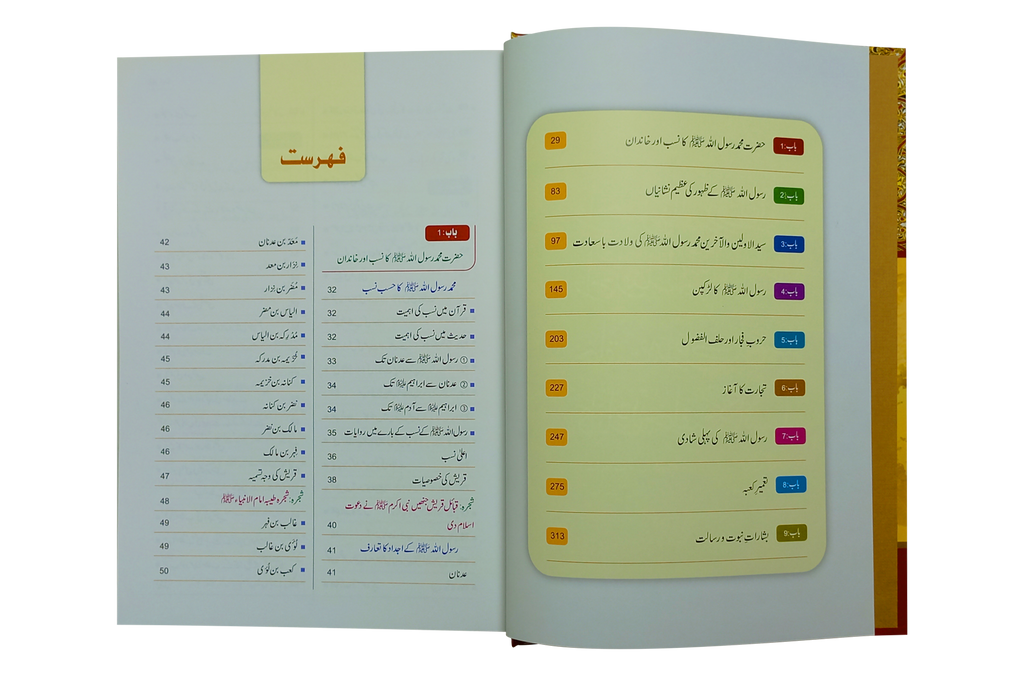 باب:1 حضرت محمد رسول اللہ ﷺ کا نسب اور خاندان 29
باب:2 رسول اللہ ﷺ کے ظہور کی عظیم نشانیاں 83
باب:3 سید الاولین والآخرین محمد رسول اللہ ﷺ کی ولادت باسعادت 97
باب:4 رسول اللہ ﷺ کا لڑکپن 145
باب:5 حروب فجار اور حلف الفضول 203
باب:6 تجارت کا آغاز 227
باب:7 رسول اللہ ﷺ کی پہلی شادی 247
باب:8 تعمیر کعبہ 275
باب:9 بشاراتِ نبوت و رسالت 313
فہرست
باب:1
حضرت محمد رسول اللہ ﷺ کا نسب اور خاندان
محمد رسول اللہ ﷺ کا حسب نسب 32
قرآن میں نسب کی اہمیت 32
حدیث میں نسب کی اہمیت 32
① رسول اللہ ﷺ سے عدنان تک 33
② عدنان سے ابراہیم علیہ السلام تک 34
③ ابراہیم علیہ السلام سے آدم علیہ السلام تک 34
رسول اللہ ﷺ کے نسب کے بارے میں روایات 35
اعلیٰ نسب 36
قریش کی خصوصیات 38
شجرہ: قبائل قریش جنھیں نبی اکرم ﷺ نے دعوت
اسلام دی 40
رسول اللہ ﷺ کے اجداد کا تعارف 41
عدنان 41
مَعَدّ بن عدنان 42
نِزار بن معد 43
مُضَر بن نزار 43
الیاس بن مضر 44
مُدْرِکہ بن الیاس 44
خُزیمہ بن مدرکہ 45
کنانہ بن خزیمہ 45
نضر بن کنانہ 46
مالک بن نضر 46
فہر بن مالک 46
قریش کی وجہ تسمیہ 47
شجرہ: شجرہ طیبہ امام الانبیاء ﷺ 48
غالب بن فہر 49
لُوَّی بن غالب 49
کعب بن لُوَّی 50